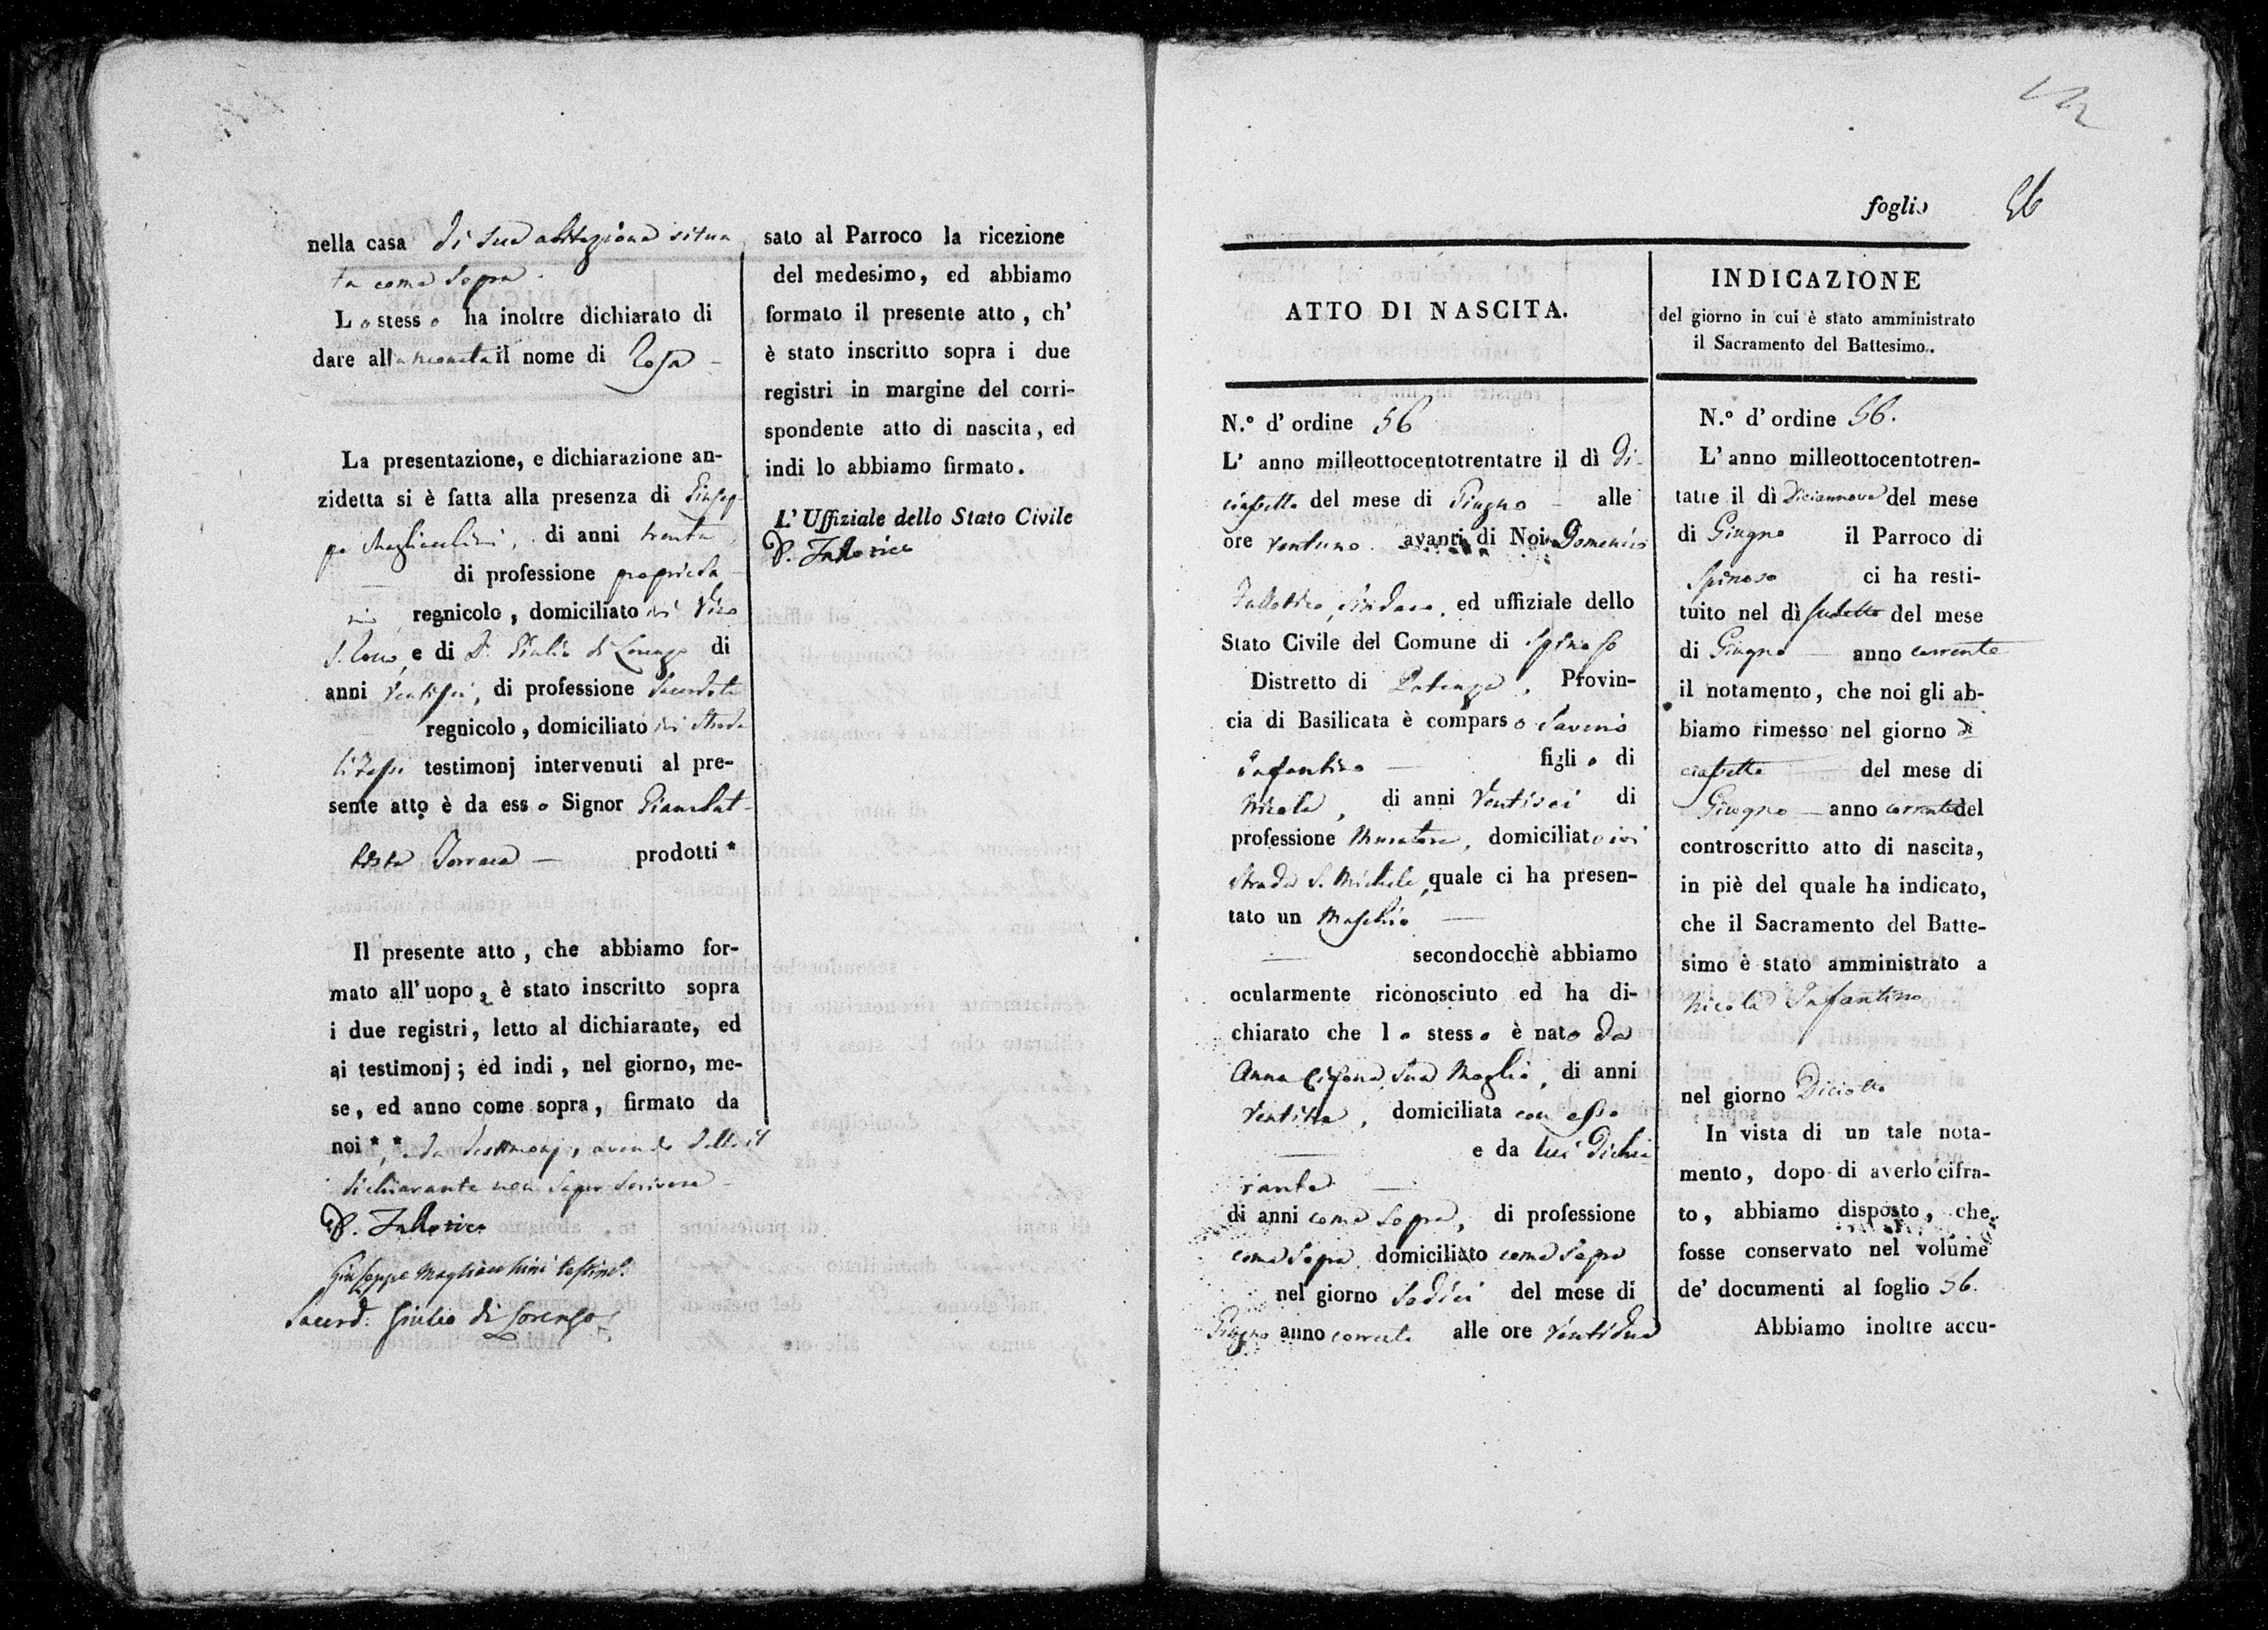 nella casa di sua abitazione situa
ta come sopra.
Lo stesso ha inoltre dichiarato di
dare alla neonata il nome di Rosa
La presentazione, e dichiarazione an-
zidetta si è fatta alla presenza di Giusep
pe Magliacchini, di anni trenta
di professione proprieta
rio regnicolo, domiciliato ivi Vico
S. Rocco, e di D. Giulio di Lorenzo di
anni ventisei, di professione Sacerdote
regnicolo, domiciliato ivi Strada
testimonj intervenuti al pre-
sente atto è da esso Signor Giambat-
tista Torraca — prodotti *
Il presente atto, che abbiamo for-
mato all'uopo, è stato inscritto sopra
i due registri, letto al dichiarante, ed
ai testimonj; ed indi, nel giorno, me-
se, ed anno come sopra, firmato da
noi *, * da testimonj, avendo detto il
dichiarante non saper scrivere
D. Fallotico
Giuseppe Magliacchini testim.
Sacerd. Giulio di Lorenzo
sato al Parroco la ricezione
del medesimo, ed abbiamo
formato il presente atto, ch'
è stato inscritto sopra i due
registri in margine del corri-
spondente atto di nascita, ed
indi lo abbiamo firmato.
L'Uffiziale dello Stato Civile
D. Fallotico
foglio 56
ATTO DI NASCITA.
N.º d'ordine 56
L'anno milleottocentotrentatre il dì di-
ciassette del mese di Giugno alle
ore ventuno avanti di Noi Domenico
Fallotico, Sindaco, ed uffiziale dello
Stato Civile del Comune di Spinoso
Distretto di Potenza, Provin-
cia di Basilicata è comparso Saverio
Infantino — figlio di
Nicola, di anni ventisei di
professione Muratore, domiciliato ivi
strada S. Michele, quale ci ha presen-
tato un Maschio —
secondocchè abbiamo
ocularmente riconosciuto ed ha di-
chiarato che lo stesso è nato da
Anna sua Moglie, di anni
domiciliata con esso
e da lui dichia
rante —
di anni come sopra, di professione
come sopra domiciliato come sopra
nel giorno sedici del mese di
Giugno anno corrente alle ore ventidue
INDICAZIONE
del giorno in cui è stato amministrato
il Sacramento del Battesimo.
N.º d'ordine 56.
L'anno milleottocentotren-
tatre il dì diciannove del mese
di Giugno il Parroco di
Spinoso ci ha resti-
tuito nel dì sudetto del mese
di Giugno — anno corrente
il notamento, che noi gli ab-
biamo rimesso nel giorno di
ciassette del mese di
Giugno — anno corrente del
controscritto atto di nascita,
in piè del quale ha indicato,
che il Sacramento del Batte-
simo è stato amministrato a
Nicola Infantino
nel giorno Diciotto
In vista di un tale nota-
mento, dopo di averlo cifra-
to, abbiamo disposto, che
fosse conservato nel volume
de' documenti al foglio 56.
Abbiamo inoltre accu-